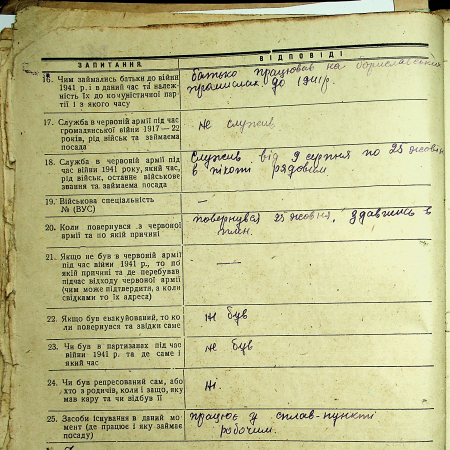 ЗАПИТАННЯ ВІДПОВІДІ
16. Чим займались батьки до війни
1941 р. і в даний час та належ-
ність їх до комуністичної пар-
тії і з якого часу
батько працював на бориславських
промислах до 1941 р.
17. Служба в червоній армії під час
громадянської війни 1917—22
років, рід військ та займаєма
посада
не служив
18. Служба в червоній армії під
час війни 1941 року, який час,
рід військ, останнє військове
звання та займаєма посада
Служив від 9 серпня по 25 жовтн
в піхоті рядовим
19. Військова спеціальність
№ (ВУС)
—
20. Коли повернувся з червоної
армії та по якій причині
повернувся 25 жовтня, здавшись в
плін.
21. Якщо не був в червоній армії
під час війни 1941 р., то по
якій причині та де перебував
підчас відходу червоної армії
(чим може підтвердити, а коли
свідками то їх адреса)
—
22. Якщо був евакуйований, то ко-
ли повернувся та звідки саме
не був
23. Чи був в партизанах під час
війни 1941 р. та де саме і
який час
не був
24. Чи був репресований сам, або
хто з родичів, коли і защо, яку
мав кару та чи відбув її
ні.
25. Засоби існування в даний мо-
мент (де працює і яку займає
посаду)
працює у сплав-пункті
робочим.